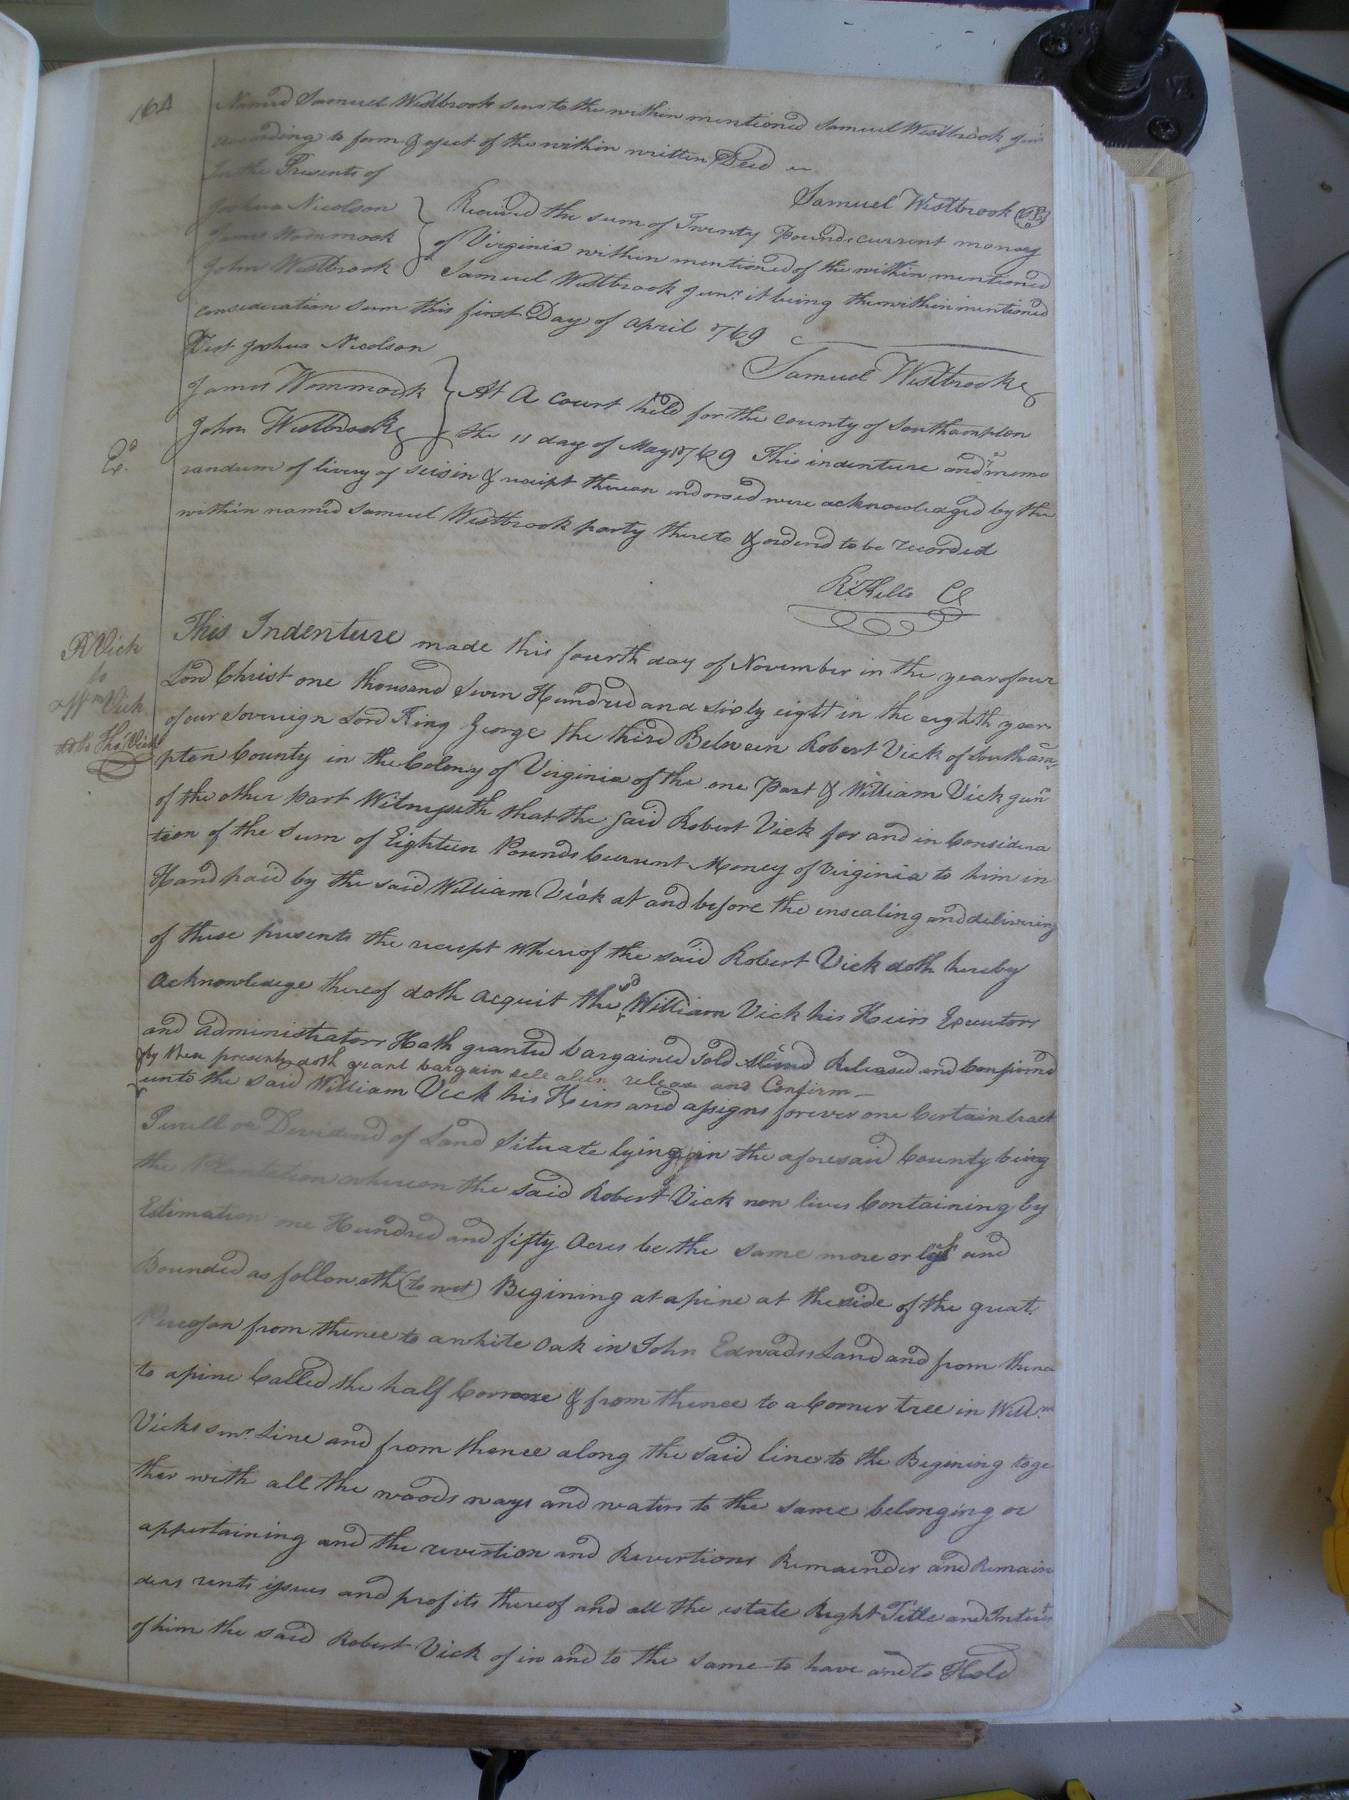 164
Named Samuel Westbrook senr to the within mentioned Samuel Westbrook jun
according to form & efect of the within written Deed
In the Presents of
Samuel Westbrook (LS)
Joshua Nicolson
James Wommock
John Westbrook
Received the sum of Twenty Pounds current money
of Virginia within mentioned of the within mentioned
Samuel Westbrook junr. it being the within mentioned
consideration sum this first Day of April 1769
Test Joshua Nicolson
Samuel Westbrook
James Wommock
John Westbrook
At A court held for the county of Southampton
the 11 day of May 1769 This indenture and memo
randum of livery of seisin & receipt thereon endorsed were acknowledged by the
within named Samuel Westbrook party thereto & ordered to be recorded
Rd Kello CC
Ed.
R Vick
to
Wm Vick
This Indenture made this fourth day of November in the year of our
Lord Christ one thousand Seven Hundred and sixty eight in the eighth year
of our Sovereign Lord King George the third Between Robert Vick of Southam
pton County in the Colony of Virginia of the one Part & William Vick junr
of the other Part Witnesseth that the said Robert Vick for and in Considera
tion of the Sum of Eighteen Pounds Current Money of Virginia to him in
Hand paid by the said William Vick at and before the ensealing and delivering
of these presents the receipt whereof the said Robert Vick doth hereby
Acknowledge thereof doth acquit the sd William Vick his Heirs Executors
and administrators Hath granted bargained Sold Aliend Released and Confirmed
by these presents doth grant bargain sell alien release and Confirm
unto the said William Vick his Heirs and assigns forever one Certain tract
Percell or Devidend of Land Situate lying in the aforesaid County being
the Plantation whereon the said Robert Vick now lives Containing by
Estimation one Hundred and fifty Acres be the same more or less and
Bounded as followeth (to wit) Begining at a pine at the side of the great
from thence to a white Oak in John Edwards Land and from thence
to a pine Called the half & from thence to a Corner tree in Willm
Vicks senr. Line and from thence along the said line to the Begining toge
ther with all the woods ways and waters to the same belonging or
appertaining and the revertion and Revertions Remainder and Remain
ders rents issues and profits thereof and all the estate Right Title and Interest
of him the said Robert Vick of in and to the same to have and to Hold